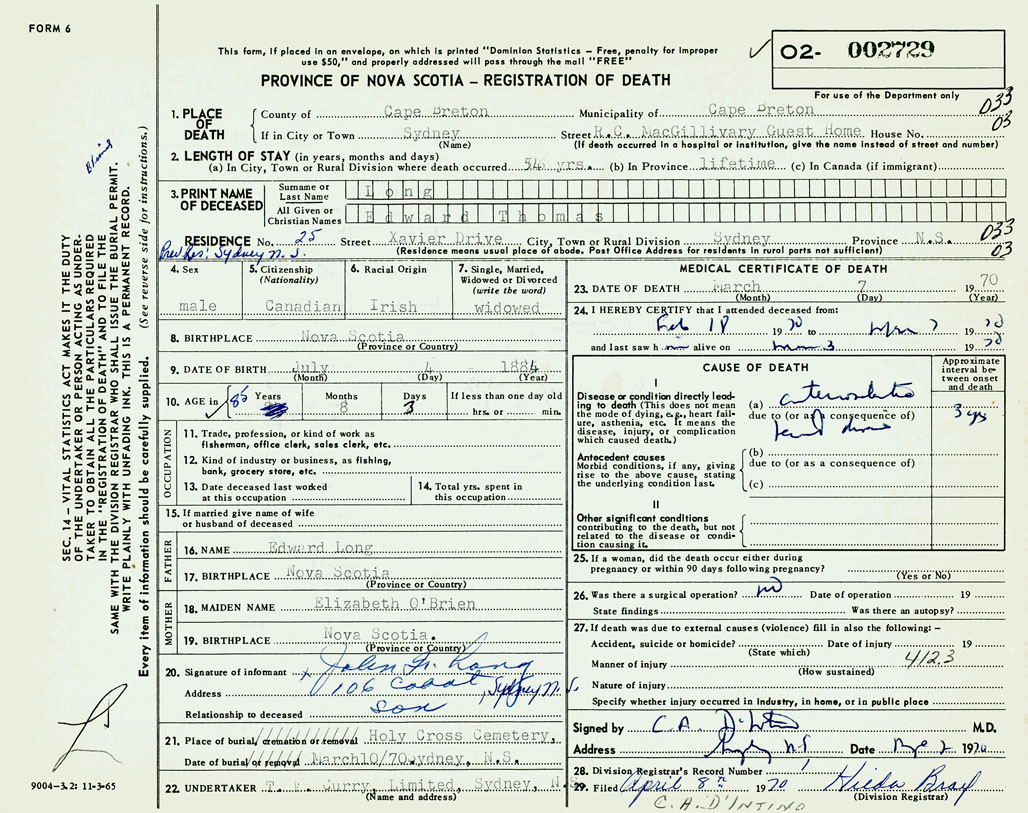 FORM 6
This form, if placed in an envelope, on which is printed "Dominion Statistics – Free, penalty for improper
use $50," and properly addressed will pass through the mail "FREE"
PROVINCE OF NOVA SCOTIA – REGISTRATION OF DEATH
✓ O2- 002729
For use of the Department only
033
03
1. PLACE OF DEATH
County of Cape Breton Municipality of Cape Breton
If in City or Town Sydney Street R.C. MacGillivary Guest Home House No.
(Name) (If death occurred in a hospital or institution, give the name instead of street and number)
2. LENGTH OF STAY (in years, months and days)
(a) In City, Town or Rural Division where death occurred 54 yrs. (b) In Province lifetime (c) In Canada (if immigrant)
3. PRINT NAME OF DECEASED
Surname or Last Name Long
All Given or Christian Names Edward Thomas
033
03
RESIDENCE No. 25 Street Xavier Drive City, Town or Rural Division Sydney Province N.S.
(Residence means usual place of abode. Post Office Address for residents in rural parts not sufficient)
Prev Res: Sydney N.S.
4. Sex
male
5. Citizenship
(Nationality)
Canadian
6. Racial Origin
Irish
7. Single, Married,
Widowed or Divorced
(write the word)
widowed
8. BIRTHPLACE Nova Scotia
(Province or Country)
9. DATE OF BIRTH July 4 1884
(Month) (Day) (Year)
10. AGE in ✓ 85 Years
Months 8
Days 3
If less than one day old
hrs. or min.
OCCUPATION
11. Trade, profession, or kind of work as
fisherman, office clerk, sales clerk, etc.
12. Kind of industry or business, as fishing,
bank, grocery store, etc.
13. Date deceased last worked
at this occupation
14. Total yrs. spent in
this occupation
15. If married give name of wife
or husband of deceased
FATHER
16. NAME Edward Long
17. BIRTHPLACE Nova Scotia
(Province or Country)
MOTHER
18. MAIDEN NAME Elizabeth O'Brien
19. BIRTHPLACE Nova Scotia.
(Province or Country)
20. Signature of informant x John Long
Address 106 Cabot, Sydney N.S.
Relationship to deceased son
21. Place of burial, cremation or removal Holy Cross Cemetery,
Date of burial or removal March10/70Sydney, N.S.
22. UNDERTAKER T. Curry, Limited, Sydney, N.S.
(Name and address)
MEDICAL CERTIFICATE OF DEATH
23. DATE OF DEATH March 7 1970
(Month) (Day) (Year)
24. I HEREBY CERTIFY that I attended deceased from:
Feb 18 1970 to Mar 7 1970
and last saw h im alive on Mar 3 1970
CAUSE OF DEATH
Approximate
interval be-
tween onset
and death
I
Disease or condition directly lead-
ing to death (This does not mean
the mode of dying, e.g., heart fail-
ure, asthenia, etc. It means the
disease, injury, or complication
which caused death.)
(a) arteriosclerotic
due to (or as a consequence of)
heart disease
3 yrs
Antecedent causes
Morbid conditions, if any, giving
rise to the above cause, stating
the underlying condition last.
(b)
due to (or as a consequence of)
(c)
II
Other significant conditions
contributing to the death, but not
related to the disease or condi-
tion causing it.
25. If a woman, did the death occur either during
pregnancy or within 90 days following pregnancy?
(Yes or No)
26. Was there a surgical operation? no Date of operation 19
State findings Was there an autopsy?
27. If death was due to external causes (violence) fill in also the following: –
Accident, suicide or homicide? Date of injury 19
(State which)
412.3
Manner of injury
(How sustained)
Nature of injury
Specify whether injury occurred in Industry, in home, or in public place
Signed by C.A. D'Intino M.D.
Address Sydney N.S. Date 1970
28. Division Registrar's Record Number
29. Filed April 8th 1970 Hilda Bray
(Division Registrar)
C.A. D'INTINO
SEC. 14 – VITAL STATISTICS ACT MAKES IT THE DUTY
OF THE UNDERTAKER OR PERSON ACTING AS UNDER-
TAKER TO OBTAIN ALL THE PARTICULARS REQUIRED
IN THE "REGISTRATION OF DEATH" AND TO FILE THE
SAME WITH THE DIVISION REGISTRAR WHO SHALL ISSUE THE BURIAL PERMIT.
WRITE PLAINLY WITH UNFADING INK. THIS IS A PERMANENT RECORD.
Every item of information should be carefully supplied. (See reverse side for instructions.)
9004-3.2: 11-3-65